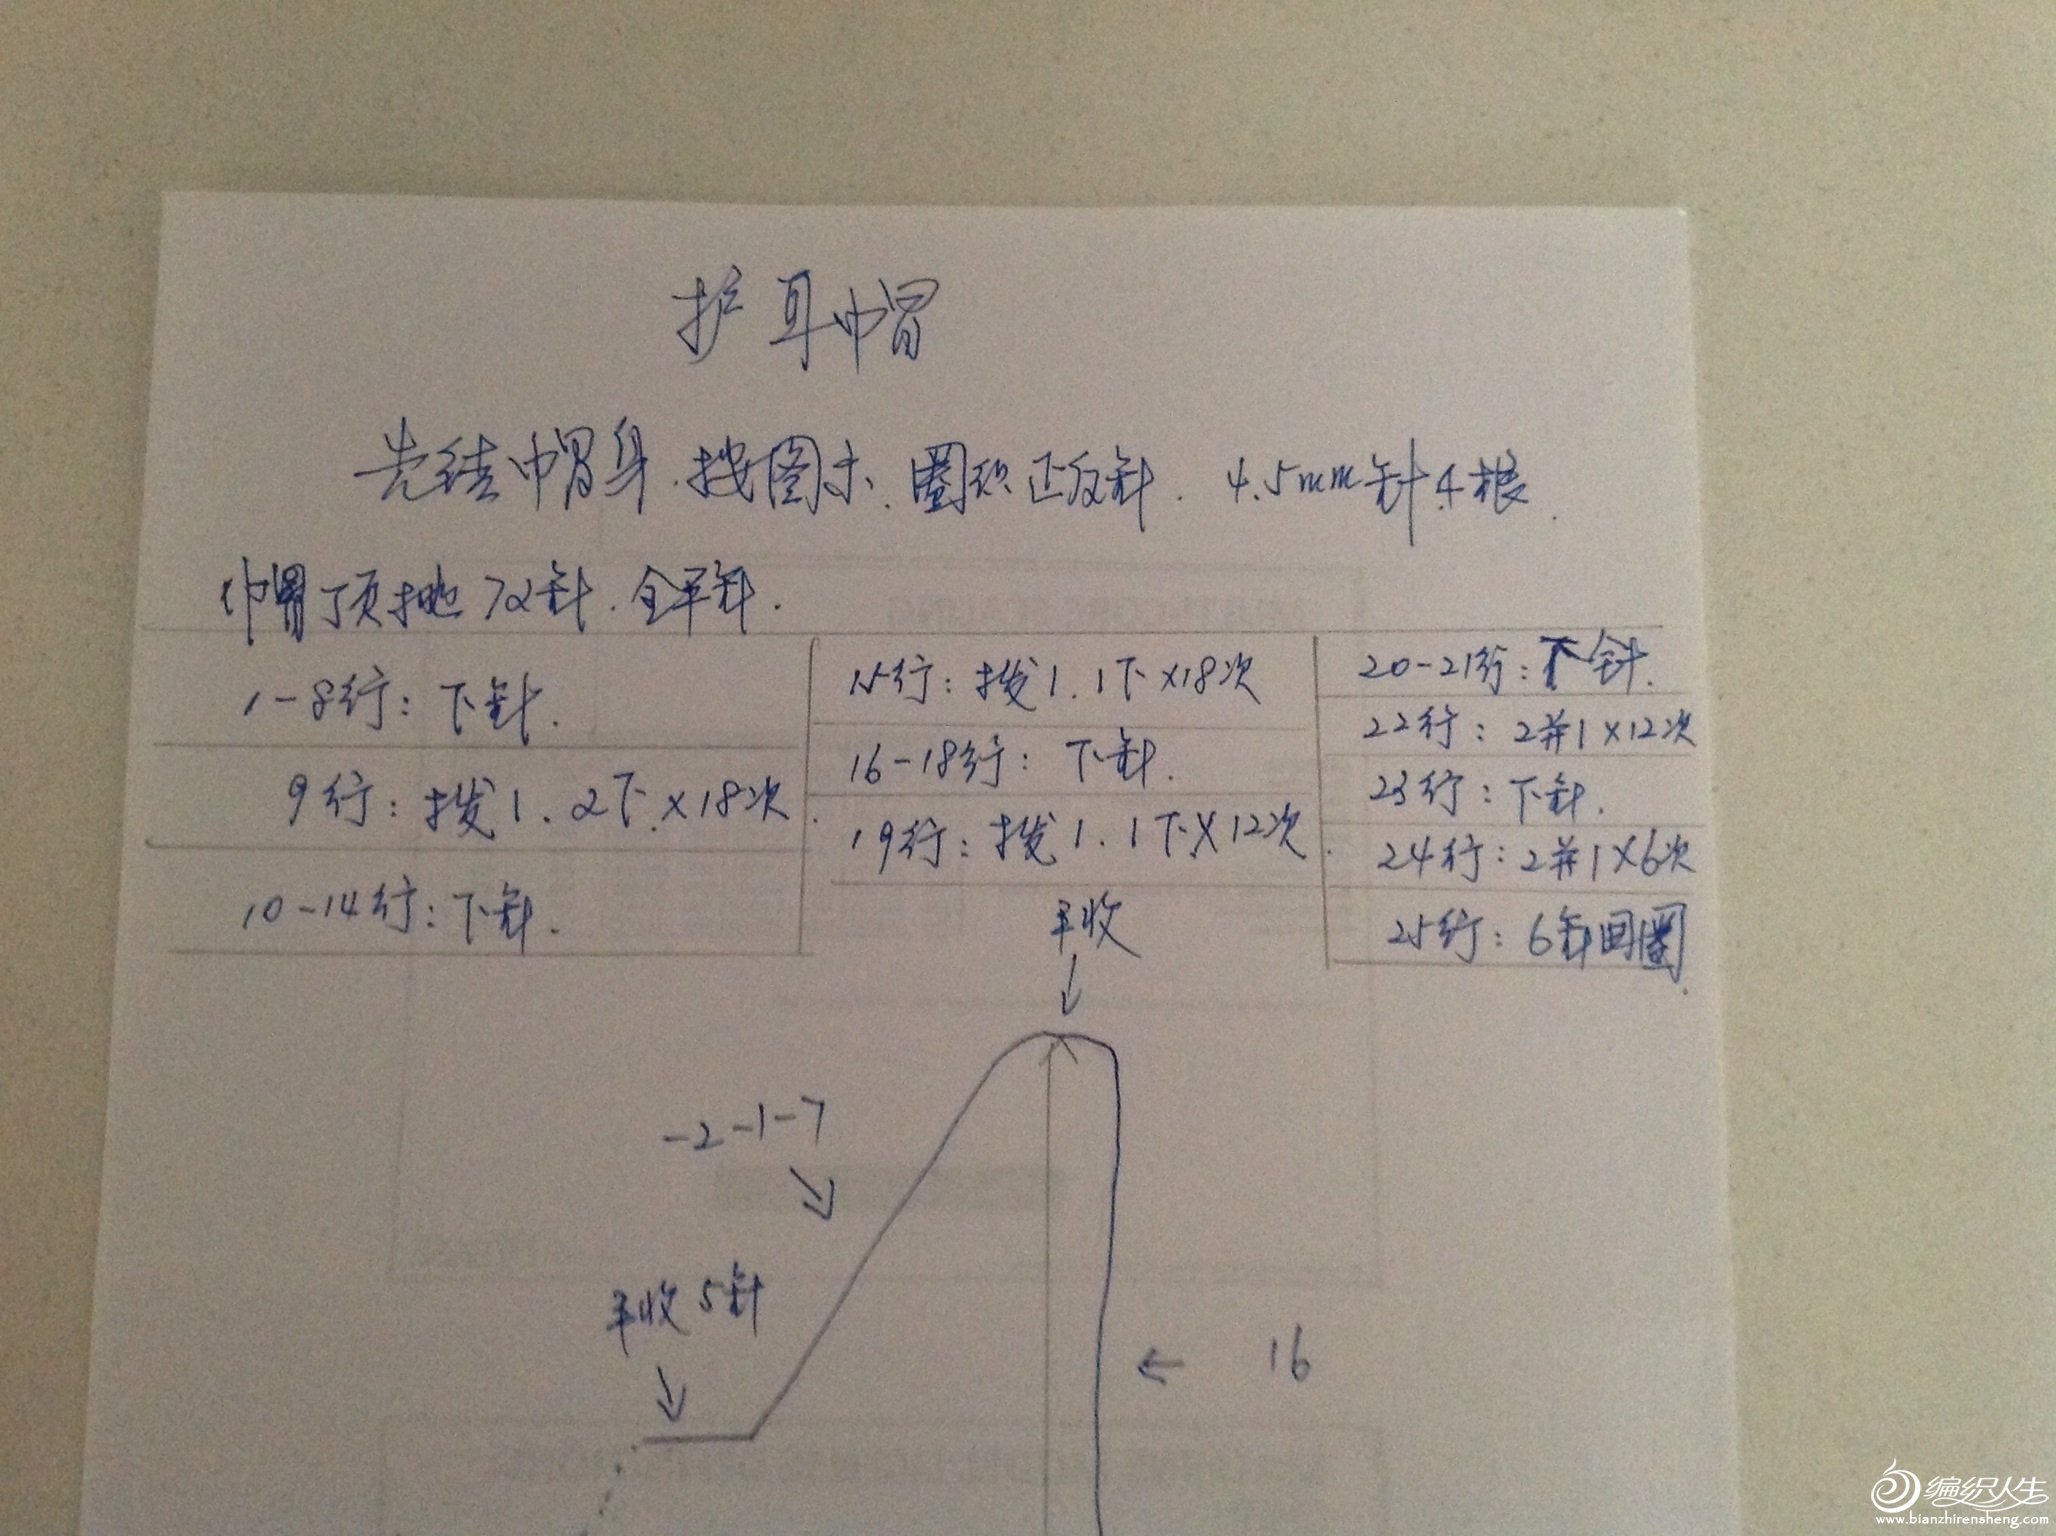 护耳帽
先结帽身.按图示.圈织正反针. 4.5mm针4根.
帽顶挑72针.全平针.
1-8行：下针.
9行：拨1.2下×18次.
10-14行：下针.
15行：拨1.1下×18次
16-18行：下针.
19行：拨1.1下×12次.
20-21行：下针.
22行：2并1×12次
23行：下针.
24行：2并1×6次
25行：6针回圈.
平收
-2-1-7
平收5针
16
编织人生
www.bianzhirensheng.com